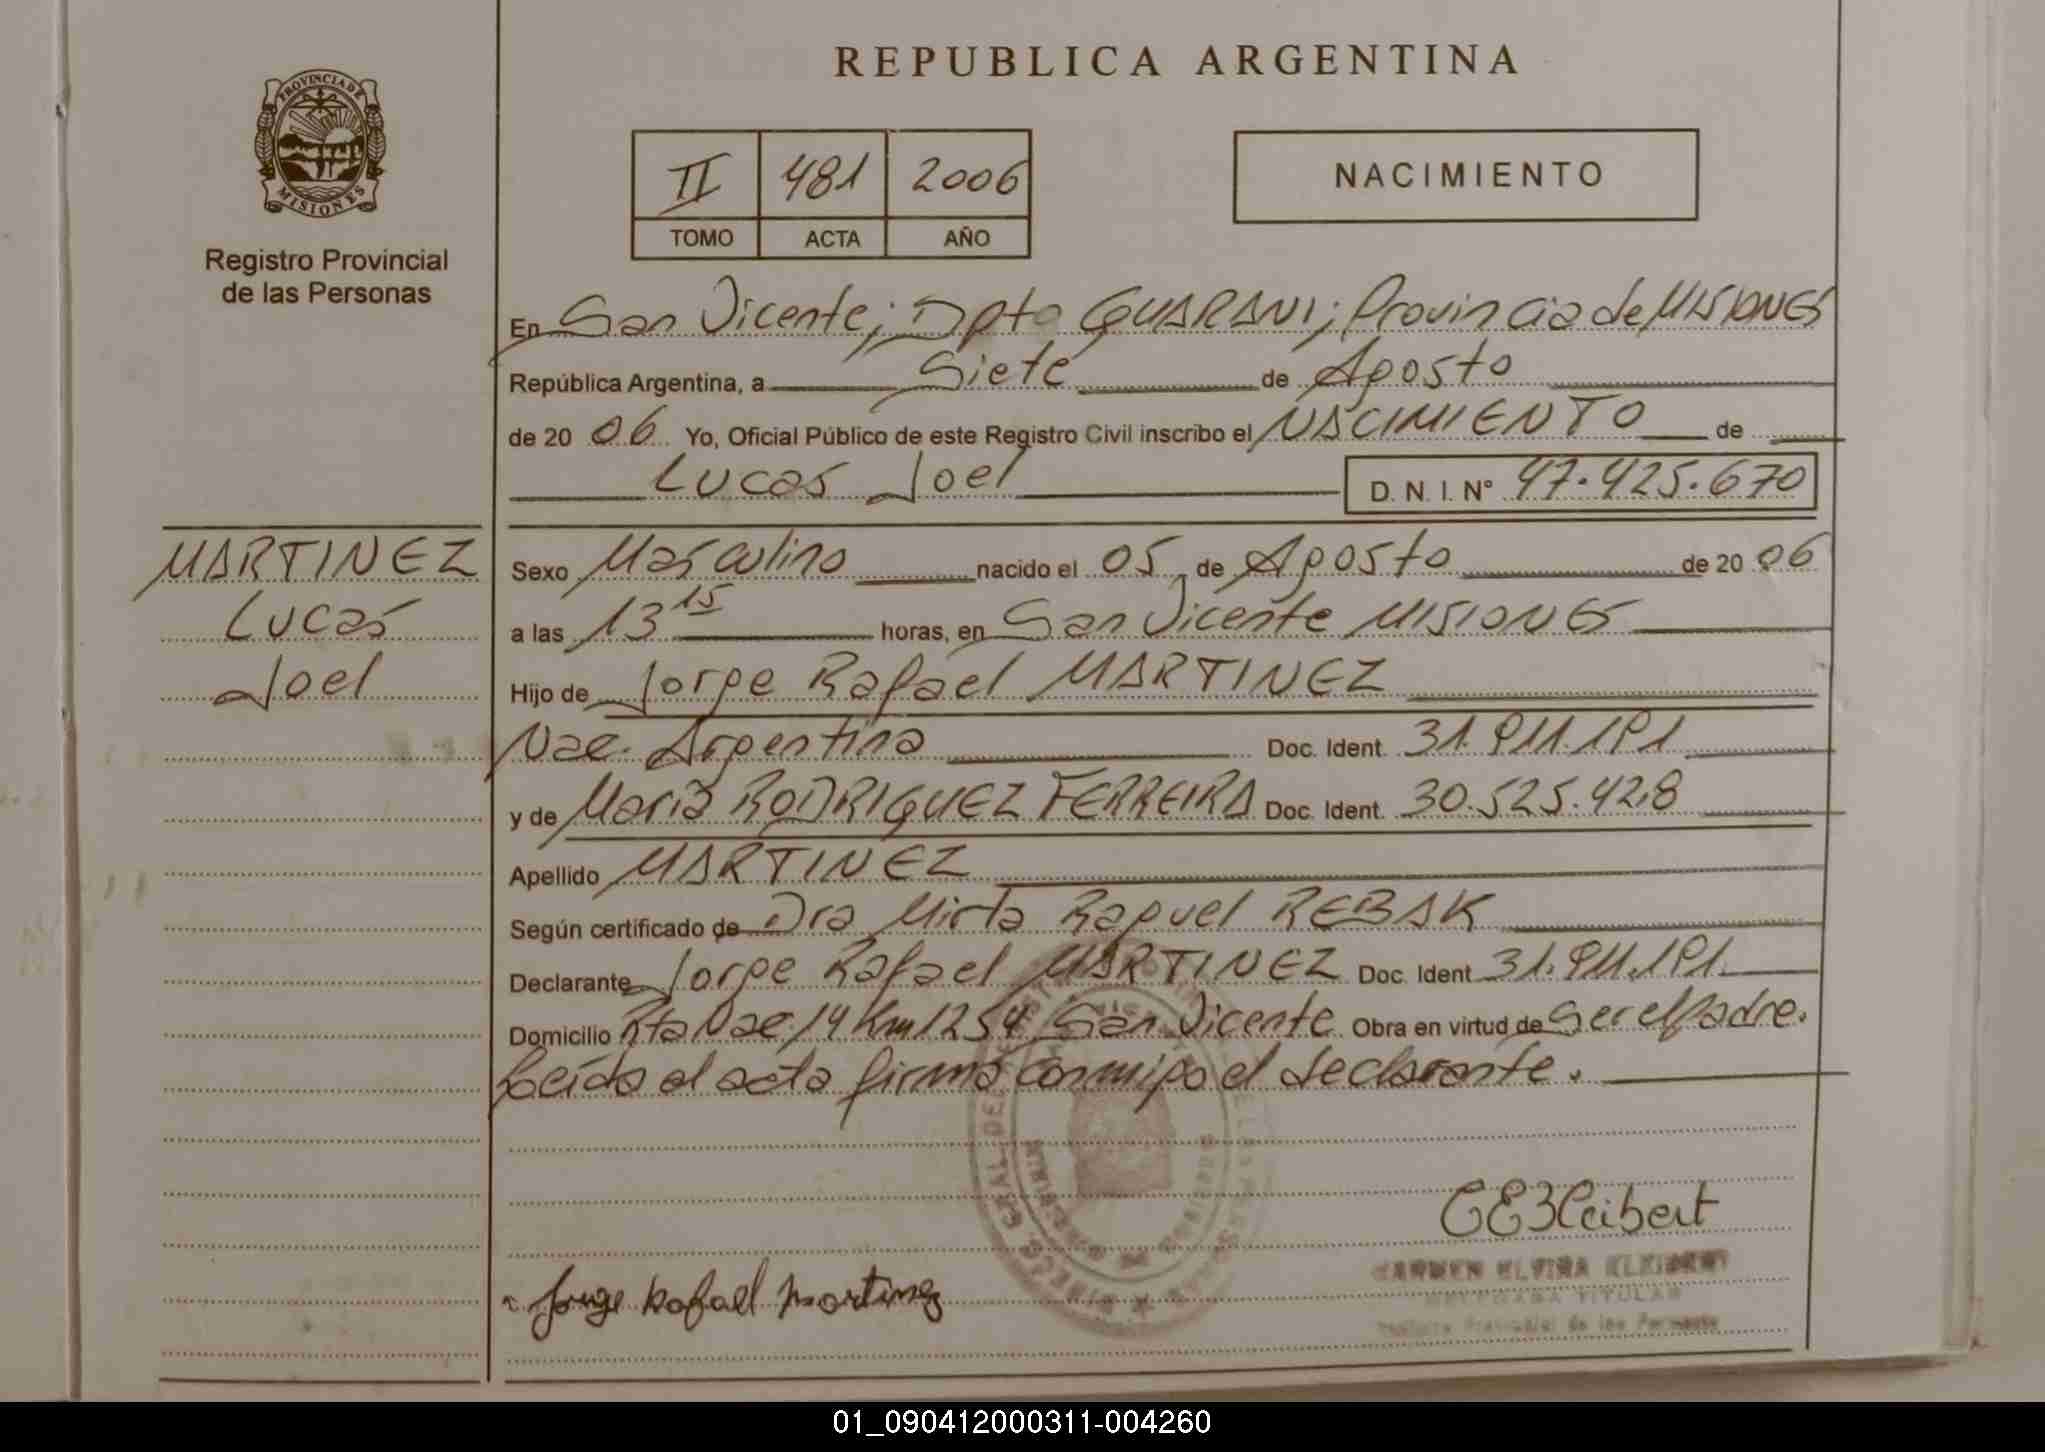 REPUBLICA ARGENTINA
PROVINCIA DE
MISIONES
Registro Provincial
de las Personas
II 481 2006
TOMO ACTA AÑO
NACIMIENTO
En San Vicente; Dpto GUARANI; Provincia de MISIONES
República Argentina, a Siete de Agosto
de 20 06 Yo, Oficial Público de este Registro Civil inscribo el NACIMIENTO de
Lucas Joel D. N. I. N° 47.425.670
MARTINEZ
Lucas
Joel
Sexo Masculino nacido el 05 de Agosto de 20 06
a las 13 15 horas, en San Vicente MISIONES
Hijo de Jorge Rafael MARTINEZ
Nac. Argentina Doc. Ident. 31.911.191
y de Maria RODRIGUEZ FERREIRA Doc. Ident. 30.525.428
Apellido MARTINEZ
Según certificado de Dra Mirta Raquel REBAK
Declarante Jorge Rafael MARTINEZ Doc. Ident 31.911.191
Domicilio Rta Nac. 14 Km 1254 San Vicente Obra en virtud de Ser el Padre.
Leída el acta firma conmigo el declarante.
Jorge Rafael Martinez
CARMEN ELVIRA
TITULAR
01_090412000311-004260